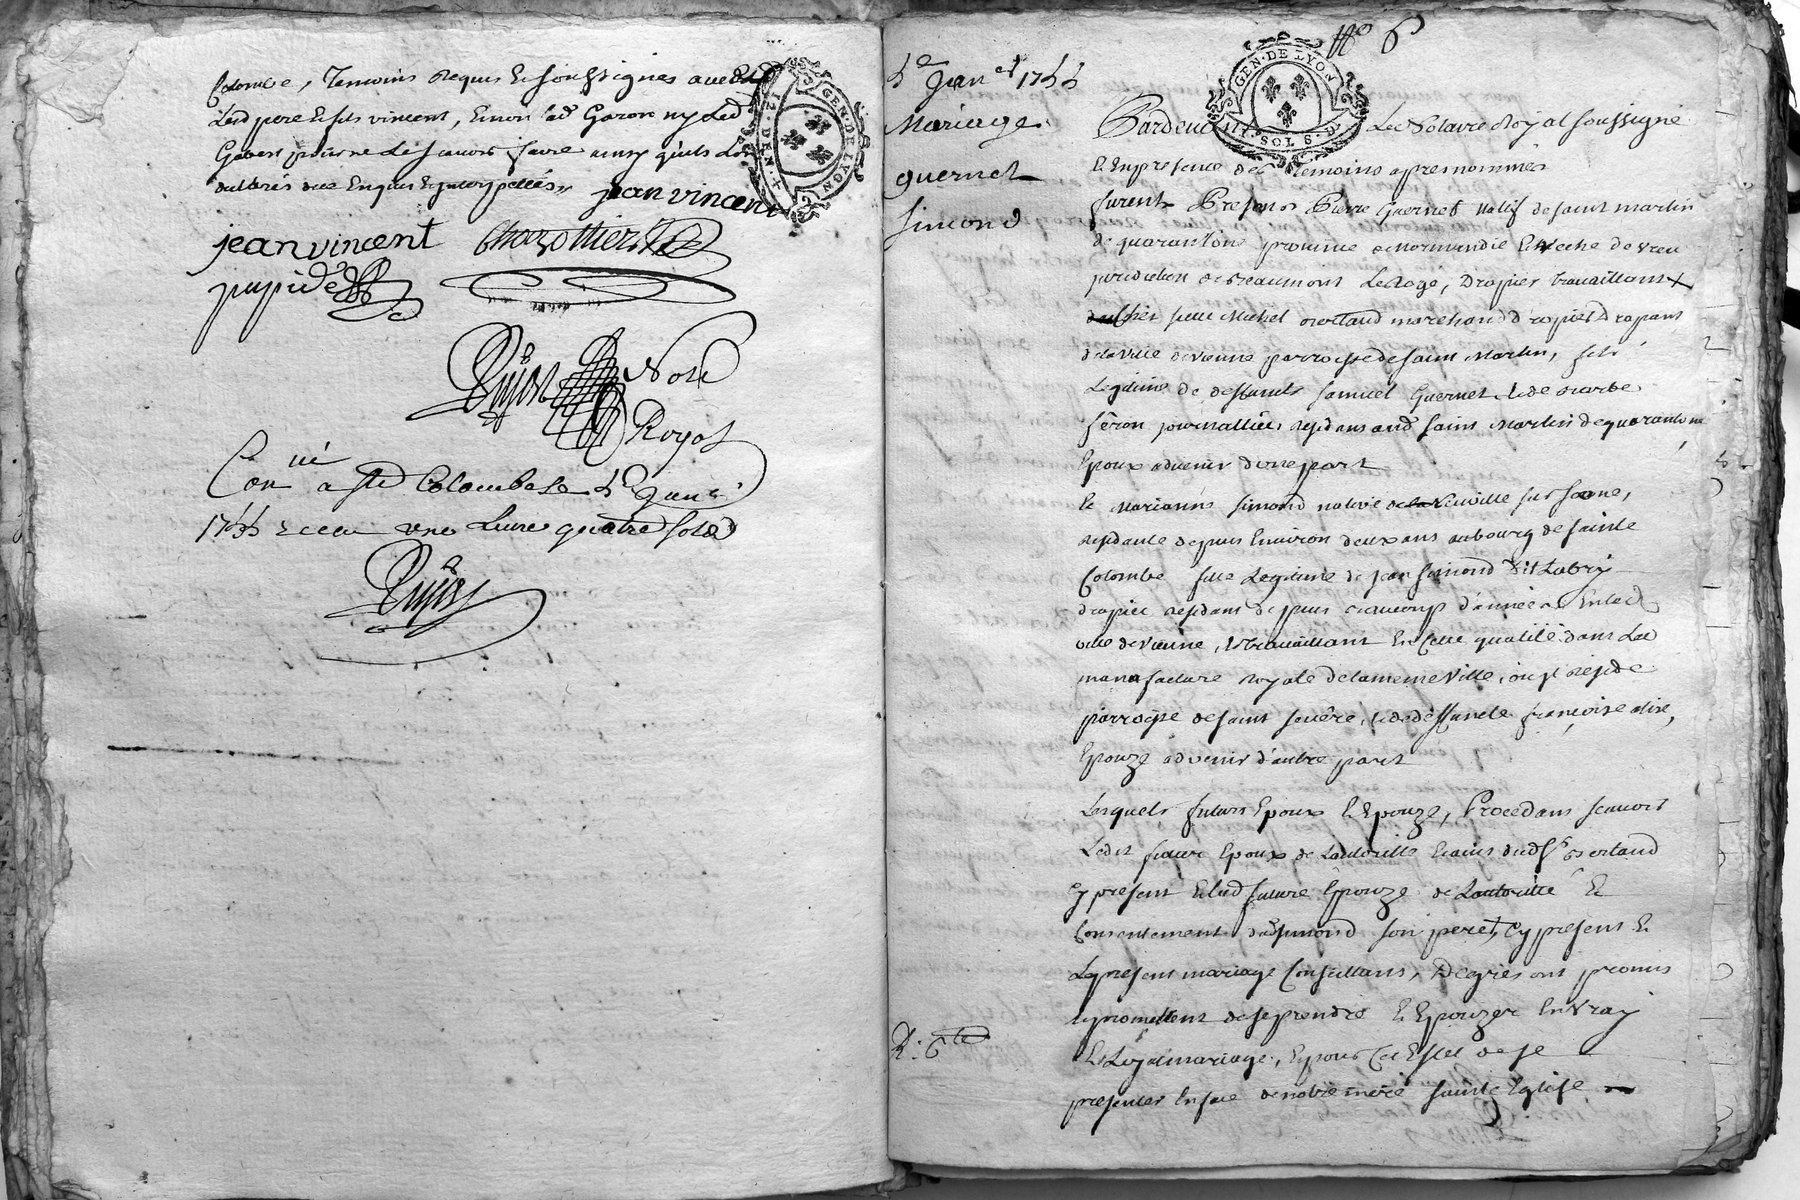 Colombe, Temoins Requis & soussignes avec
Led pere & fils vincent, Et non lad Garon ny Led
pour ne le scavoir faire ainsy qu'ils L'ont
declarés de ce Enquis & Interpellés
jean vincent
jean vincent Chazottier
pupid
Dujon Notre
Royal
Con né a Ste Colombe Le 4e Janr
1755 receu une Livre quatre sols
Dujon
GEN·DE LYON
12·DEN·
4e Janer 1755
Mariage
guernet
simond
No 6
GEN·DE LYON
SOLS
Pardevt Le Notaire Royal soussigné
& En presence des temoins apres nommés
furent Presens Pierre Guernet Natif de saint martin
de quarantone province de Normandie Eveche de vreu
jurisdiction de Beaumont Le Roge, Drapier travaillant
chés sieur Michel Bertaud marchand drapier drapant
de la ville de vienne parroisse de saint Martin, fils
Legitime de deffunts samuel Guernet & de Barbe
féron journallier residans aud saint Martin de quarantone
Epoux advenir d'une part
Et Marianne simond native de Neuville sur saone,
residante depuis Environ deux ans au bourg de sainte
Colombe fille Legitime de jean simond dit Labry
drapier residant depuis beaucoup d'années En lad
ville de vienne, & travaillant En cette qualité dans Lad
manufacture royale de la meme ville, ou il reside
parroisse de saint sevére, & de deffuncte françoise
Epouze advenir d'autre part
Lesquels futurs Epoux & Epouze, Procedans scavoir
Ledit futur Epoux de L'autorité dud Sr Bertaud
Cy present & lad future Epouze de L'autorité &
Consentement dud simond son pere, Cy present &
Le present mariage Conseillant, De gré ont promis
& promettent de se prendre & Epouzer En vray
& Loyal mariage, & pour Cet Effet de se
presenter En face de notre mere sainte Eglise
R: 6